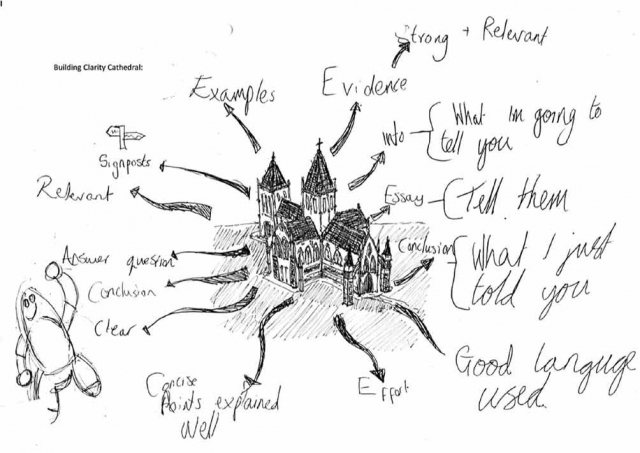 Building Clarity Cathedral:
Strong + Relevant
Examples
Evidence
Into
What im going to
tell you
Signposts
Relevant
Essay
Tell them
Answer question
Conclusion
Clear
Conclusion
What I just
told you
Concise
Points explained
Well
Effort
Good languge
used.